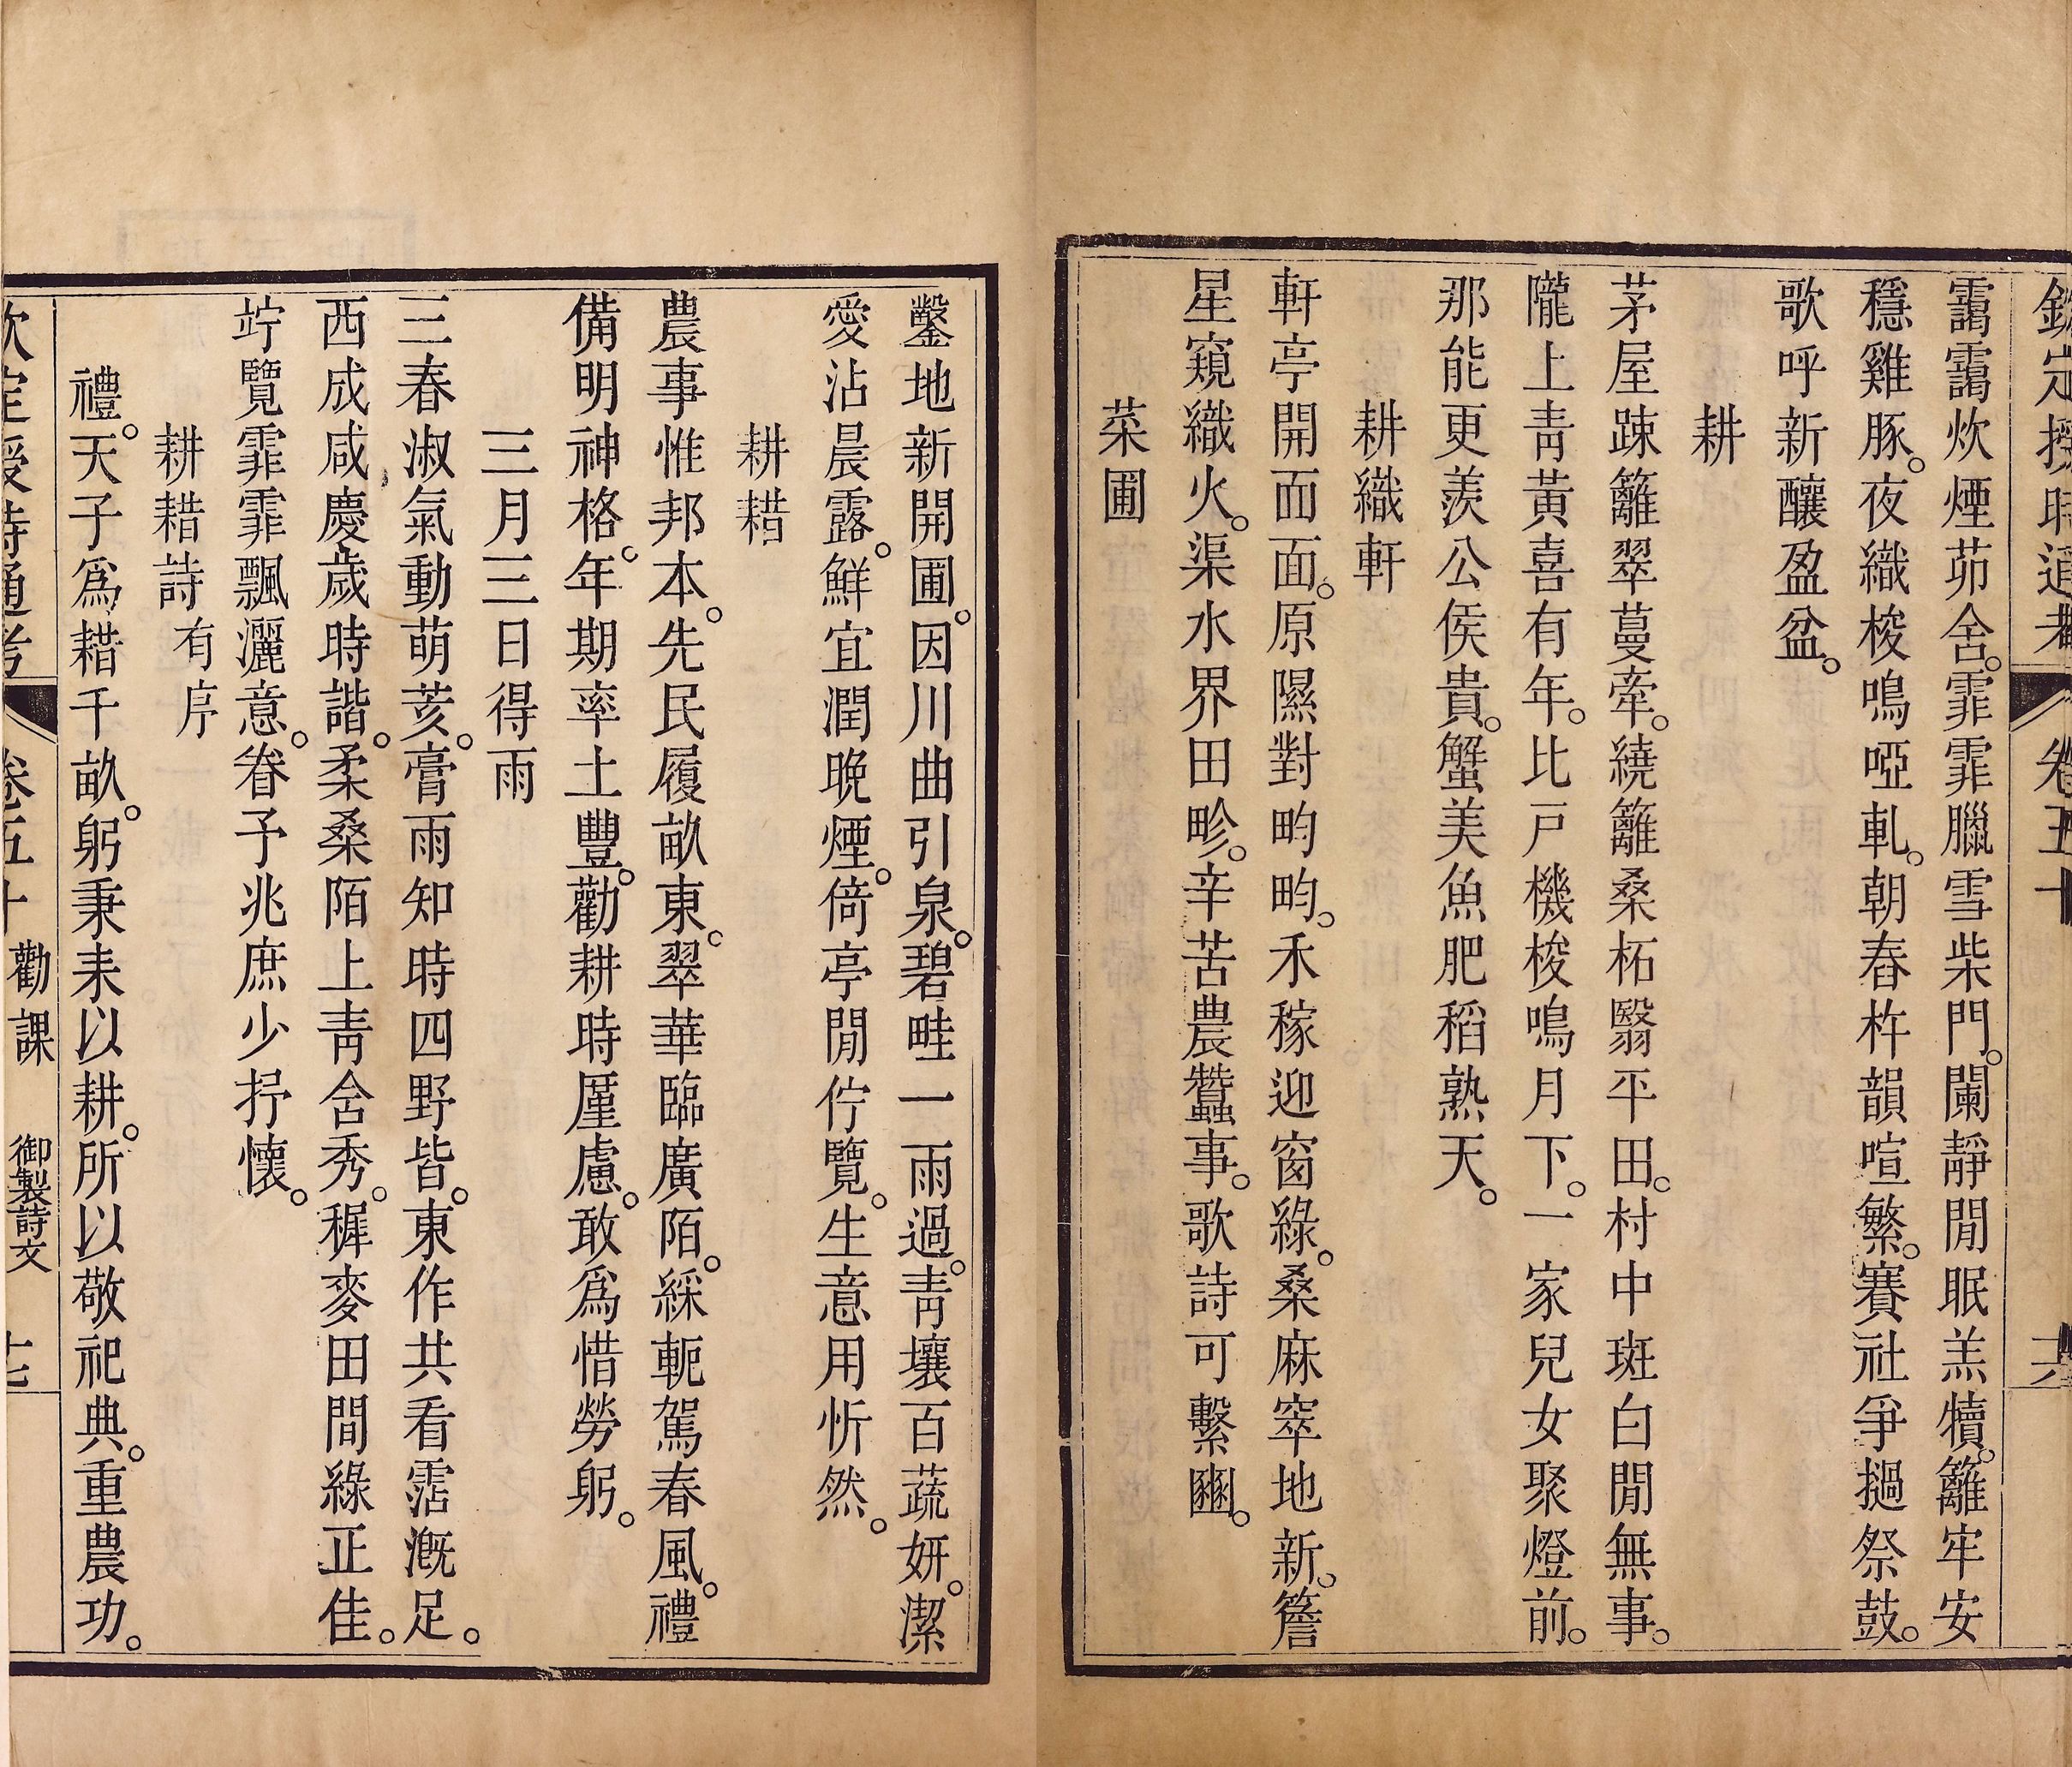 欽定授時通考 卷五十 六
靄靄炊煙茆舍。霏霏臘雪柴門。闌靜閒眠羔犢。籬牢安
穩雞豚。夜織梭鳴啞軋。朝舂杵韻喧繁。賽社爭撾祭鼓。
歌呼新釀盈盆。
耕
茅屋踈籬翠蔓牽。繞籬桑柘翳平田。村中斑白閒無事。
隴上青黃喜有年。比戸機梭鳴月下。一家兒女聚燈前。
那能更羨公侯貴。蟹美魚肥稻熟天。
耕織軒
軒亭開面面。原隰對畇畇。禾稼迎窗綠。桑麻窣地新。簷
星窺織火。渠水界田畛。辛苦農蠶事。歌詩可繫豳。
菜圃
鑿地新開圃。因川曲引泉。碧畦一雨過。青壤百蔬妍。潔
愛沾晨露。鮮宜潤晚煙。倚亭閒佇覽。生意用忻然。
耕耤
農事惟邦本。先民履畝東。翠華臨廣陌。綵軛駕春風。禮
備明神格。年期率土豐。勸耕時厪慮。敢爲惜勞躬。
三月三日得雨
三春淑氣動萌荄。膏雨知時四野皆。東作共看霑漑足。
西成咸慶歲時諧。柔桑陌上青含秀。穉麥田間綠正佳。
竚覽霏霏飄灑意。眷予兆庶少抒懷。
耕耤詩有序
禮。天子爲耤千畝。躬秉耒以耕。所以敬祀典。重農功。
欽定授時通考 卷五十 勸課 御製詩文 七